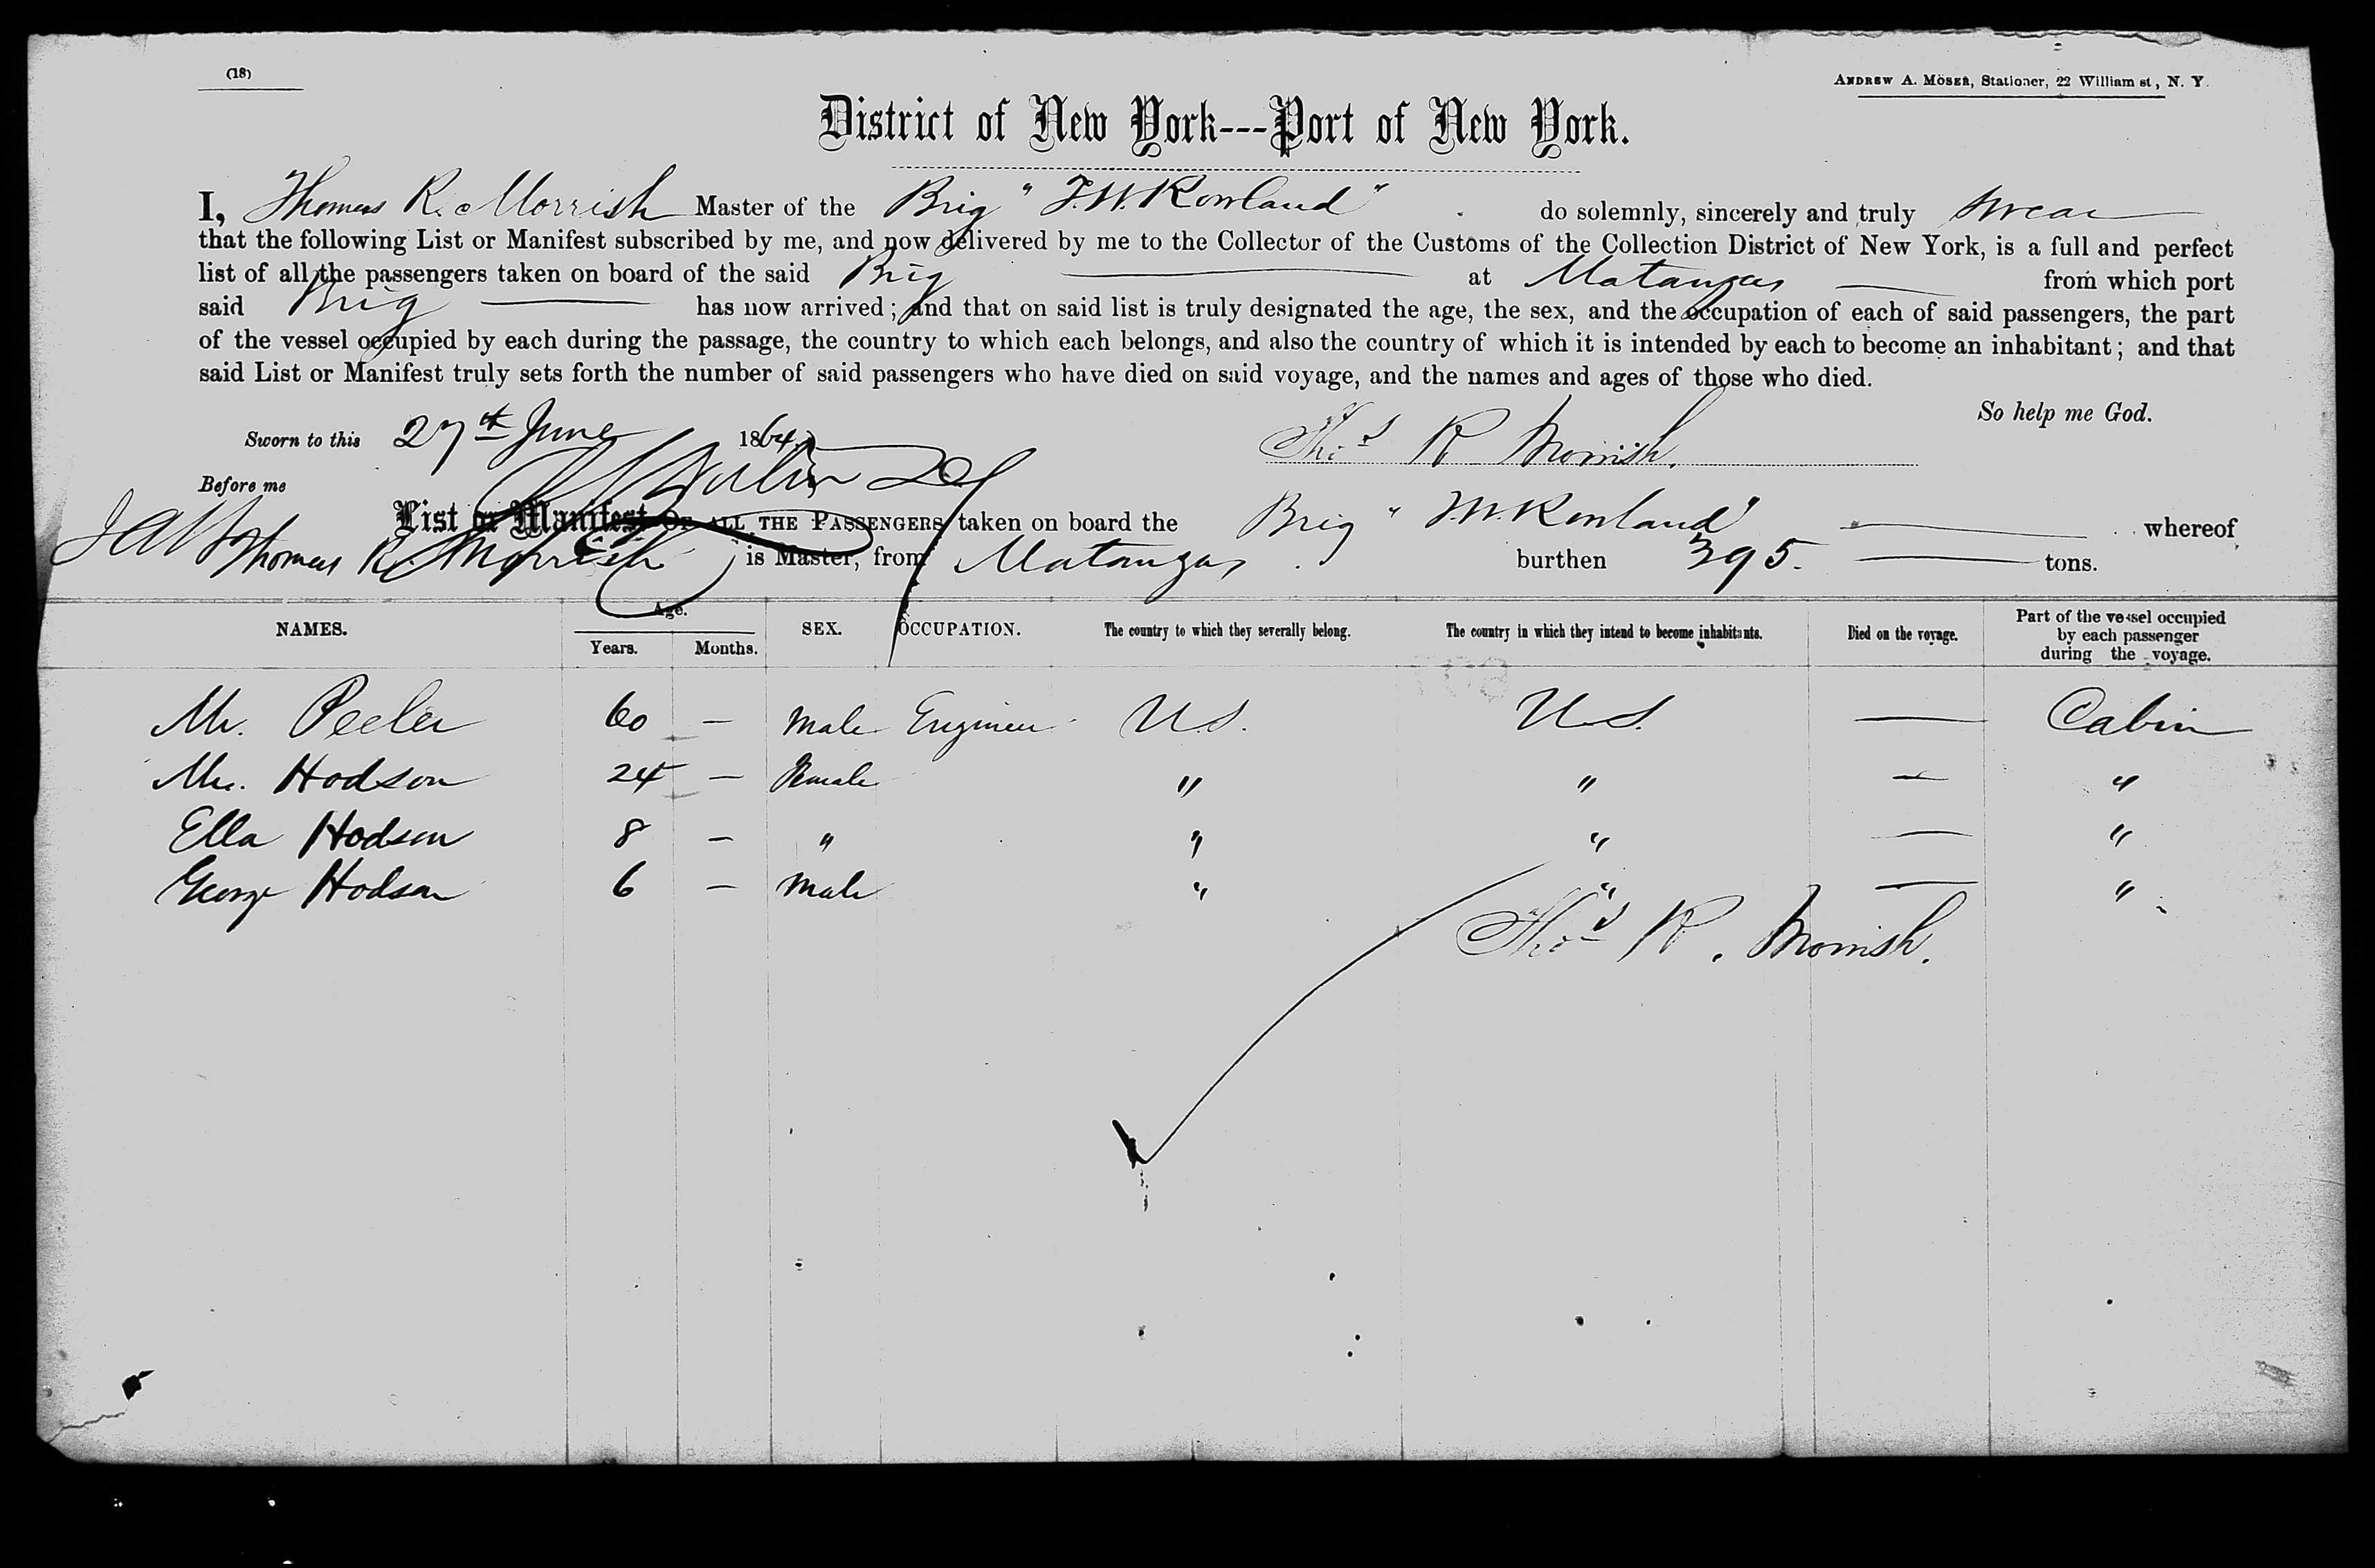 (18)
ANDREW A. MÖSER, Stationer, 22 William st, N. Y.
District of New York---Port of New York.
I, Thomas R. Morrish Master of the Brig "J.W. Rowland" do solemnly, sincerely and truly swear
that the following List or Manifest subscribed by me, and now delivered by me to the Collector of the Customs of the Collection District of New York, is a full and perfect
list of all the passengers taken on board of the said Brig at Matanzas from which port
said Brig has now arrived; and that on said list is truly designated the age, the sex, and the occupation of each of said passengers, the part
of the vessel occupied by each during the passage, the country to which each belongs, and also the country of which it is intended by each to become an inhabitant; and that
said List or Manifest truly sets forth the number of said passengers who have died on said voyage, and the names and ages of those who died.
So help me God.
Sworn to this 27th June 1864 Thos R Morrish.
Before me
List or Manifest OF ALL THE PASSENGERS taken on board the Brig "J.W. Rowland" whereof
Thomas R. Morrish is Master, from Matanzas burthen 395. tons.
NAMES. Age. Years. Months. SEX. OCCUPATION. The country to which they severally belong. The country in which they intend to become inhabitants. Died on the voyage. Part of the vessel occupied by each passenger during the voyage.
Mr. Peeler 60 — Male Engineer U.S. U.S. — Cabin
Mrs. Hodson 24 — Female " " — "
Ella Hodson 8 — " " " — "
George Hodson 6 — Male " " — "
Thos R. Morrish.